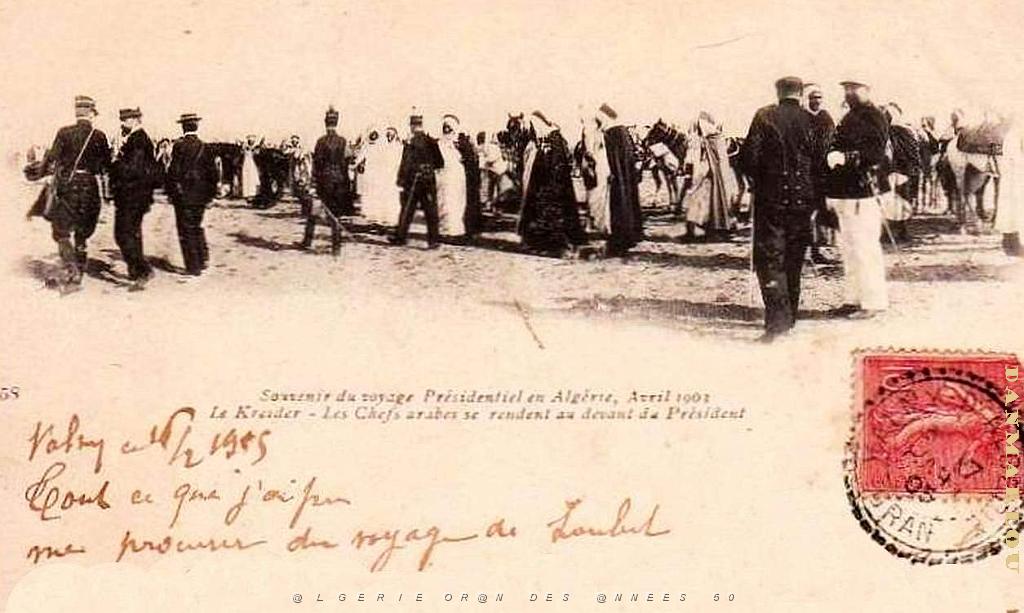 58
Souvenir du voyage Présidentiel en Algérie, Avril 1903
Le Kreider - Les Chefs arabes se rendent au devant du Président
1905
Tout ce que j'ai pu
me procurer du voyage de Loubet
ORAN
DANMARLOU
@LGERIE OR@N DES @NNEES 50